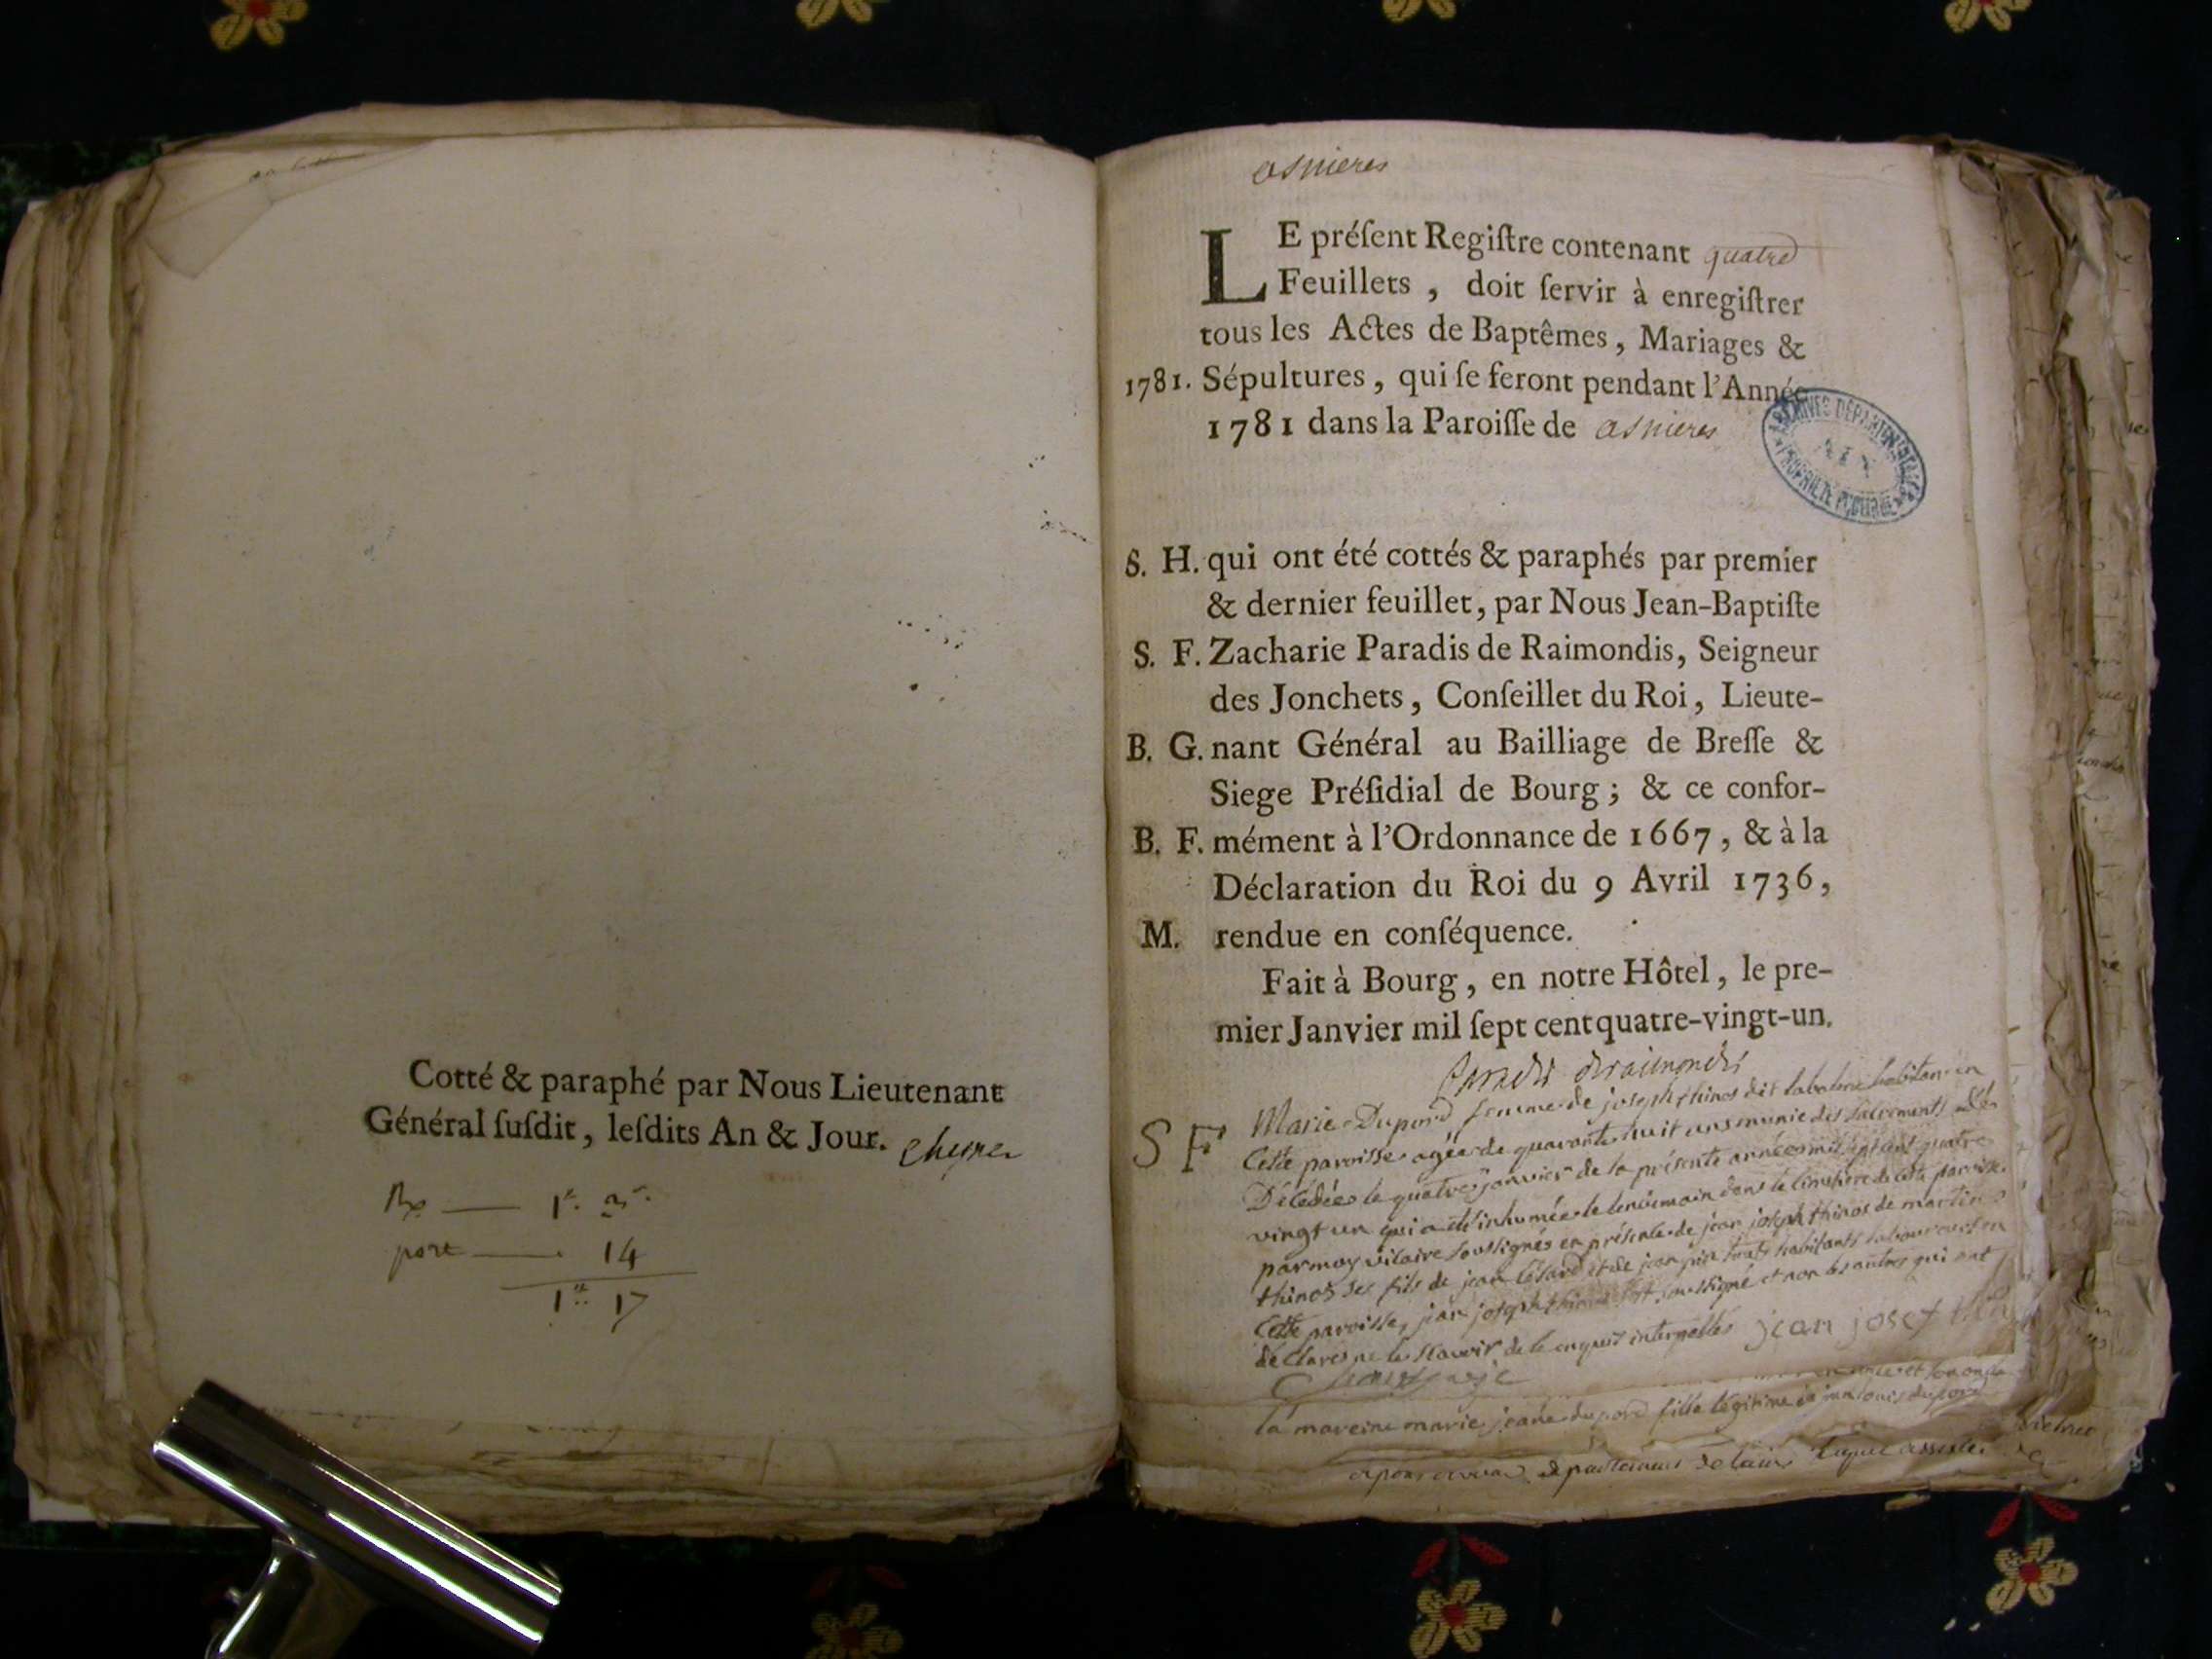 Cotté & paraphé par Nous Lieutenant
Général ſuſdit, leſdits An & Jour.
14
17
asnieres
LE préſent Regiſtre contenant quatre
Feuillets, doit ſervir à enregiſtrer
tous les Actes de Baptêmes, Mariages &
1781. Sépultures, qui ſe feront pendant l'Année
1781 dans la Paroiſſe de asnieres
ARCHIVES DÉPARTEMENTALES
AIN
PROPRIÉTÉ PUBLIQUE
S. H. qui ont été cottés & paraphés par premier
& dernier feuillet, par Nous Jean-Baptiſte
S. F. Zacharie Paradis de Raimondis, Seigneur
des Jonchets, Conſeillet du Roi, Lieute-
B. G. nant Général au Bailliage de Breſſe &
Siege Préſidial de Bourg; & ce confor-
B. F. mément à l'Ordonnance de 1667, & à la
Déclaration du Roi du 9 Avril 1736,
M. rendue en conſéquence.
Fait à Bourg, en notre Hôtel, le pre-
mier Janvier mil ſept cent quatre-vingt-un.
Paradis deraimondis
S F Marie Dupond femme de joseph thinos dit
Cette paroisse agée de quarante huit ans munie des sacrements
Décédée le quatre janvier de la présente année mil sept cent quatre
vingt un qui a été inhumée le lendemain dans le cimetiere de cette paroisse
par moy vicaire soussigné en présence de jean joseph thinos de martin
thinos fils de jean et de jean habitants laboureurs en
Cette paroisse, jean joseph soussigné et non les autres qui ont
déclaré ne le scavoir de ce enquis interpellés jean josef
la mareine marie jeane dupond fille légitime de jean louis dupond
departement de lain lequel